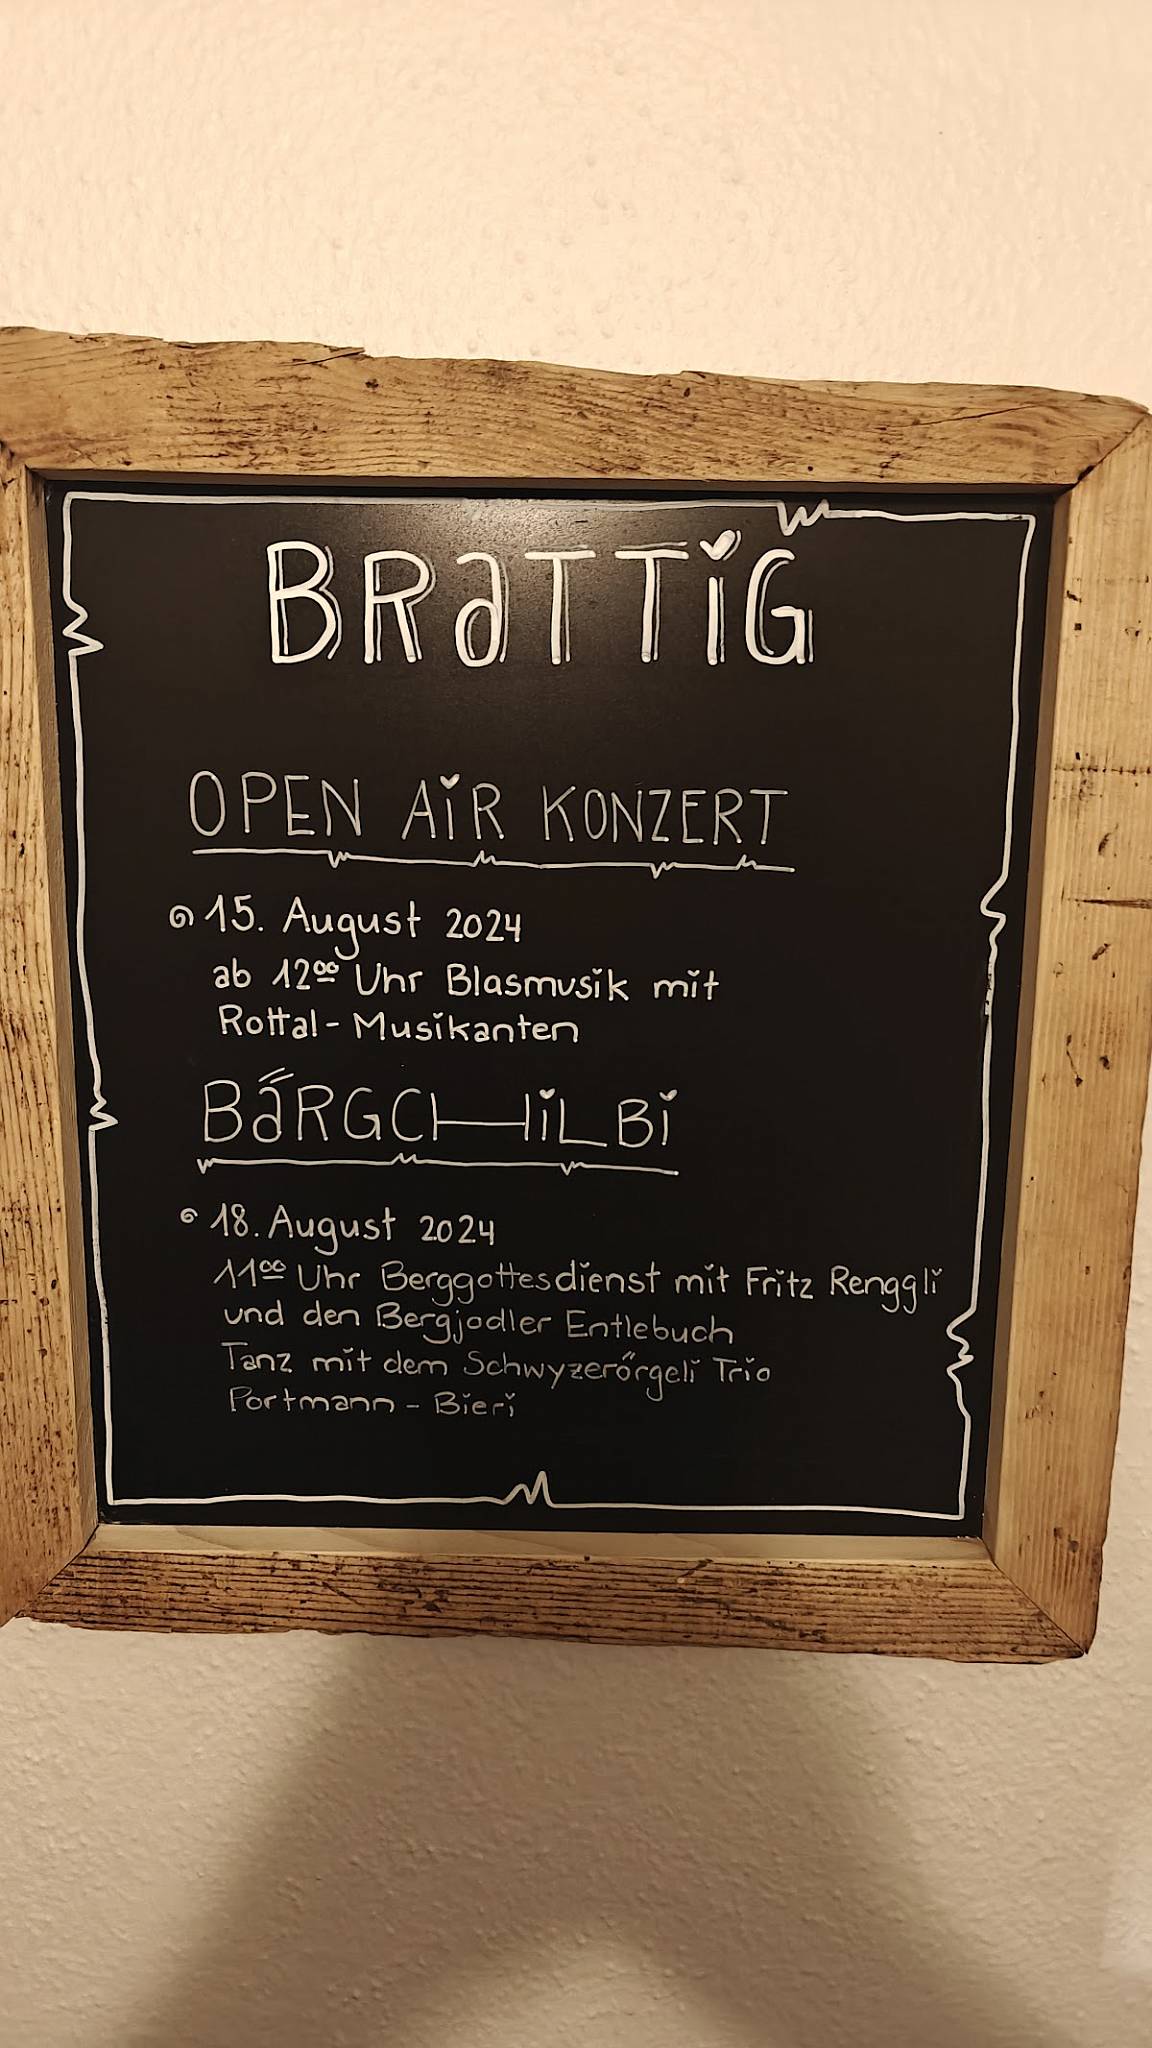 BRATTIG
OPEN AIR KONZERT
15. August 2024
ab 12⁰⁰ Uhr Blasmusik mit
Rottal-Musikanten
BÄRGCHILBI
18. August 2024
11⁰⁰ Uhr Berggottesdienst mit Fritz Renggli
und den Bergjodler Entlebuch
Tanz mit dem Schwyzerörgeli Trio
Portmann - Bieri